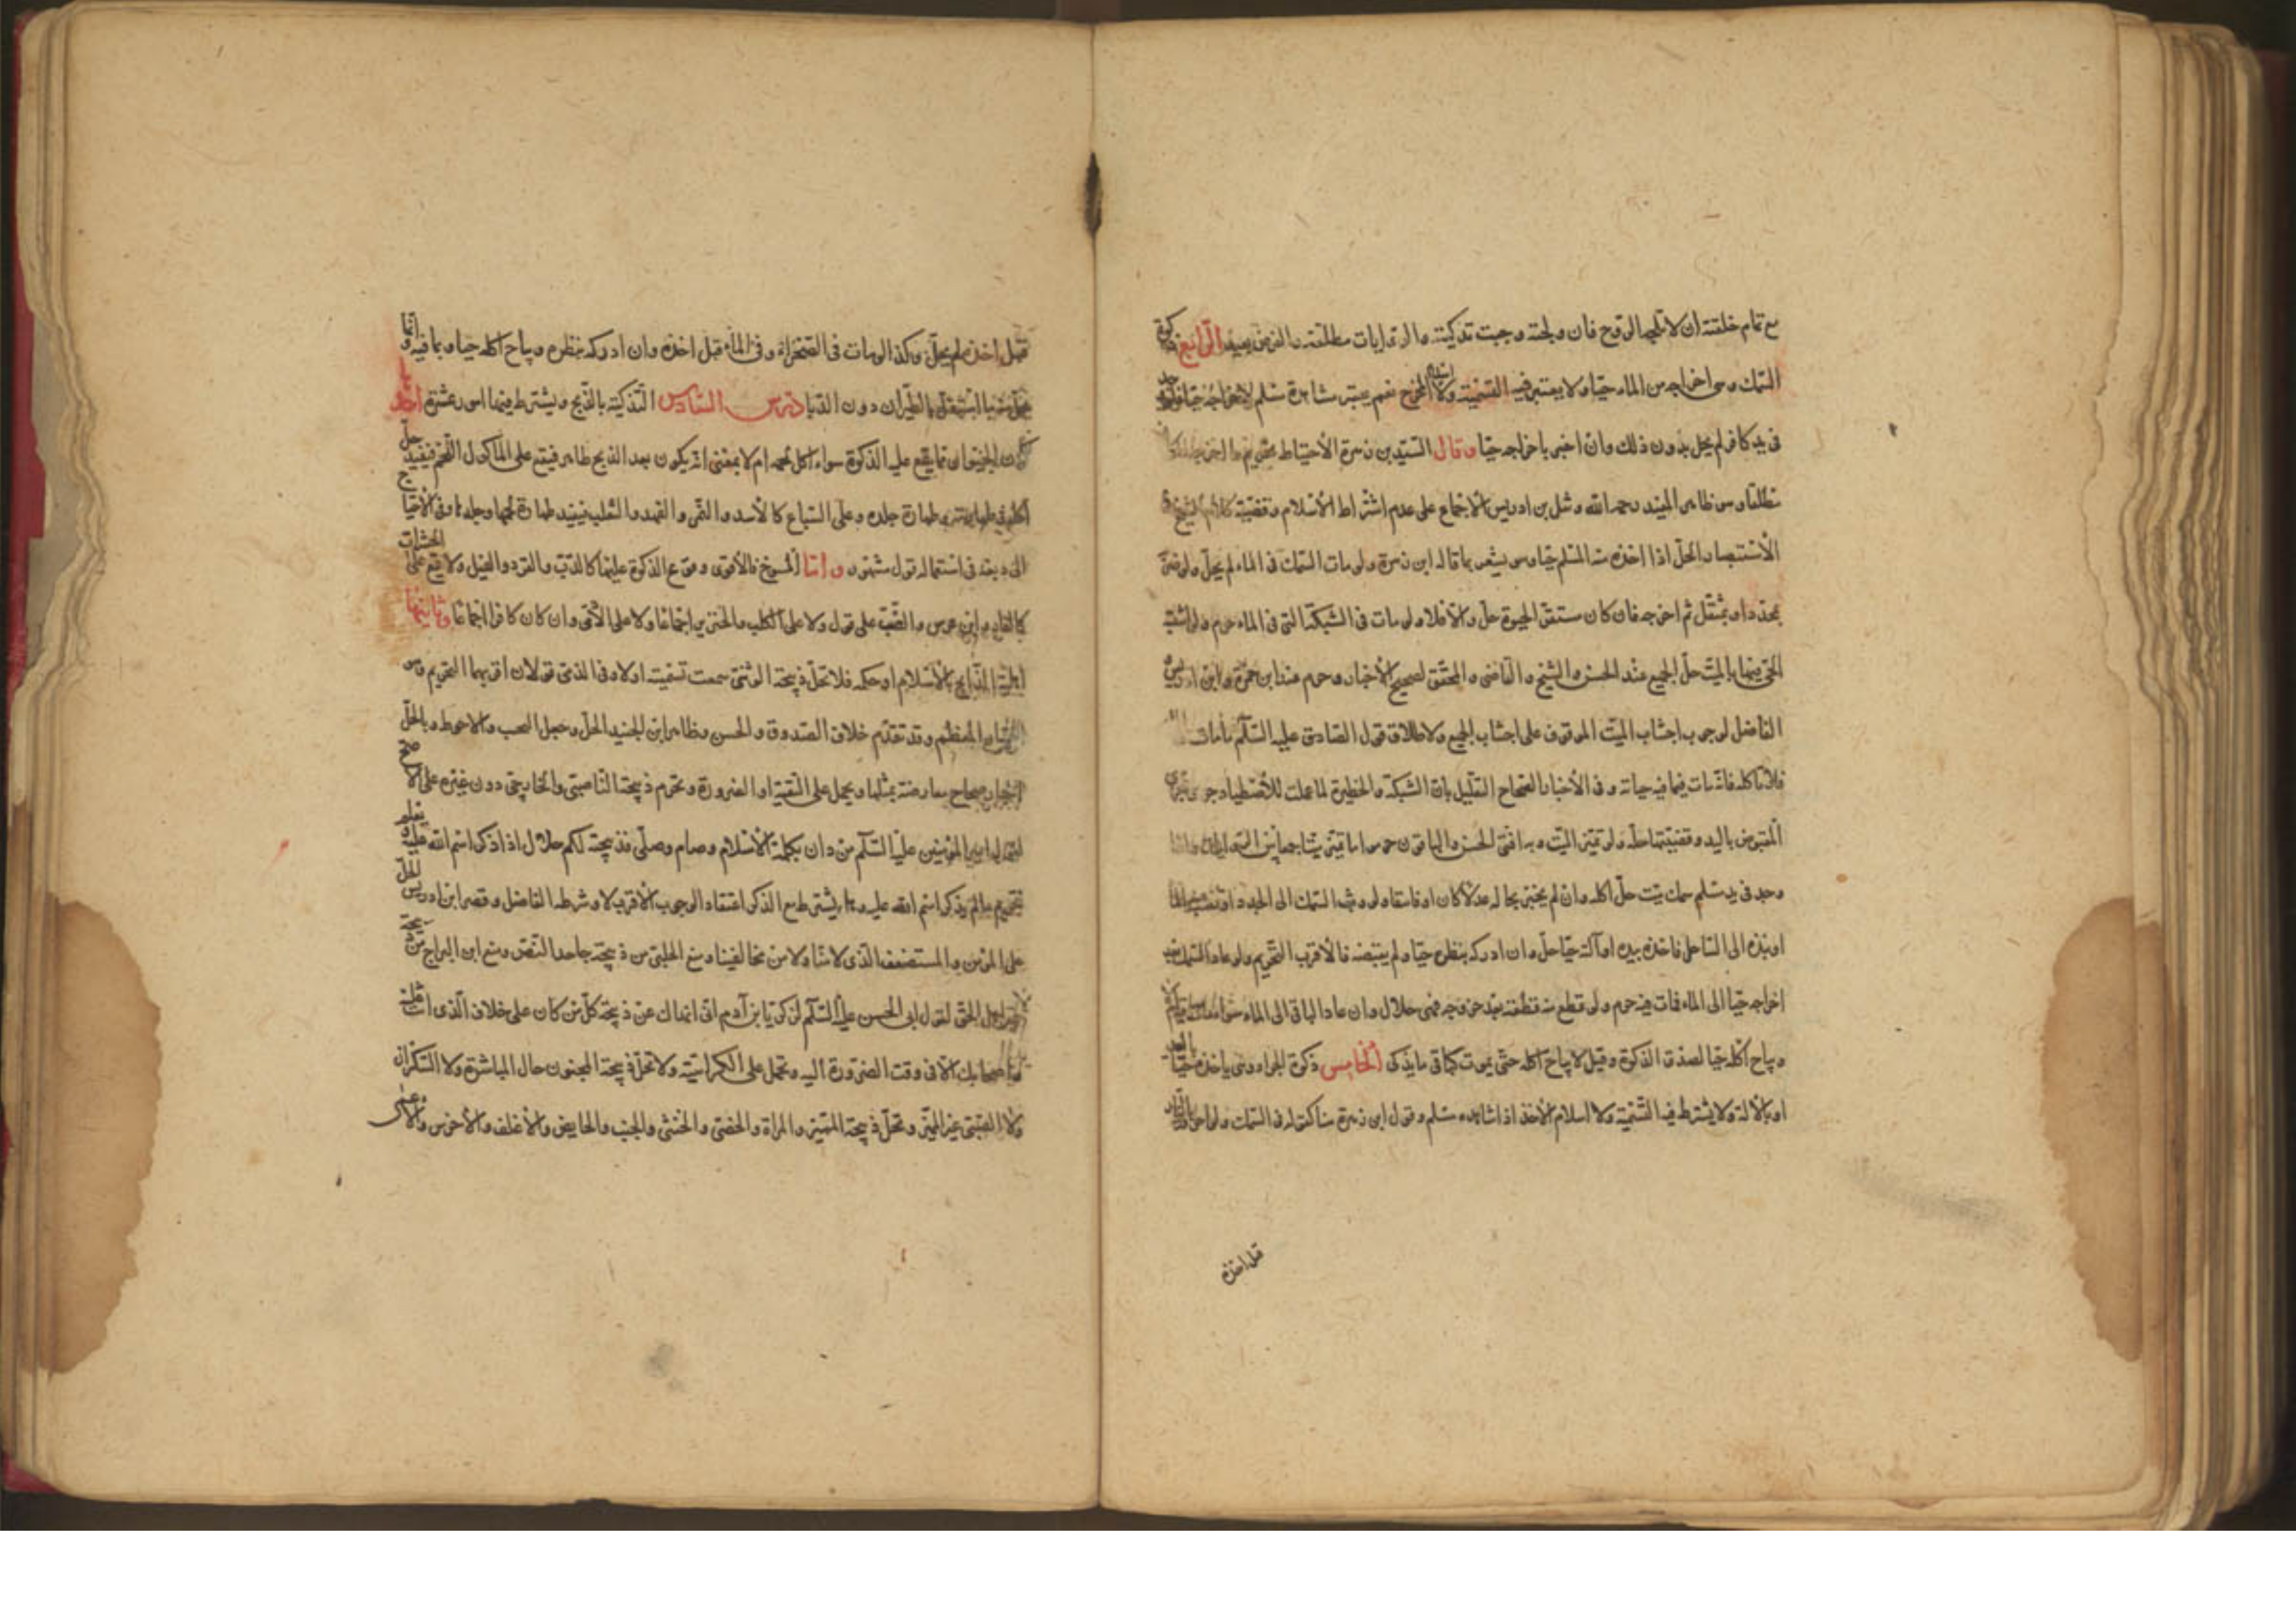 مع تمام خلقته ان لا تلجه الروح فان ولجته وجبت تذكيته والروايات مطلقة والفرض بعيد الرابع ذكوة
السمك وهى اخراجه من الماء حيّا ولا يعتبر فيه التسمية ولا اسلام المخرج نعم يعتبر مشاهدة مسلم لاخراجه حيّا فلو وجد
فى يد كافر لم يحل بدون ذلك وان اخبر باخراجه حيّا وقال السيّد بن زهرة الأحتياط تحريم ما اخرجه الكافر
مطلقا وهو ظاهر المفيد رحمه الله ونقل بن ادريس الاجماع على عدم اشتراط الأسلام وقضيّة كلام الشيخ فى
الأستبصار الحلّ اذا اخذه منه المسلم حيّا وهو يشعر بما قاله ابن زهرة ولو مات السمك فى الماء لم يحلّ ولو ضرب
بمحدّد او بمثقّل ثم اخرجه فان كان مستقرّ الحيوة حلّ والّا فلا ولو مات فى الشبكة التى فى الماء حرم ولو اشتبه
الحىّ فيها بالميّت حلّ الجميع عند الحسن والشيخ والقاضى والمحقّق لصحيح الأخبار وحرم عند ابن حمزة وابن ادريس
الفاضل لوجوب اجتناب الميّت الموقوف على اجتناب الجميع ولاطلاق قول الصادق عليه السّلم ما مات
فلا تأكله فانّه مات فيما فيه حياته وفى الأخبار الصحاح التعليل بان الشبكة والحظيرة لما عملت للأصطياد جرى مجرى
المقبوض باليد وقضيّتها حلّه ولو تميّز الميّت وبه افتى الحسن والباقون حرموا ما تميّز ميّتا جمعا بين الروايات وامّا
وجد فى يد مسلم سمك ميّت حلّ اكله وان لم يخبر بحاله عدلا كان او فاسقا ولو وثب السمك الى الجدد او نضب عنه الماء
او نبذه الى الساحل فاخذه بيده او آلة حيّا حلّ وان ادركه بنظره حيّا ولم يقبضه فالأقرب التحريم ولو عاد السمك بعد
اخراجه حيّا الى الماء فمات فيه حرم ولو قطع منه قطعة بعد خروجه فهى حلال وان عاد الباقى الى الماء سواء مات فيه ام لا
ويباح اكله حيّا لصدق الذكوة وقيل لا يباح اكله حتى يموت كباقى ما يذكى الخامس ذكوة الجراد وهى ياخذه حيّا باليد
او بالآلة ولا يشترط فيه التسمية ولا اسلام الآخذ اذا شاهده مسلم وقول ابن زهرة هنا كقوله فى السمك ولو احرقه بالنار
قبل اخذه
قبل اخذه لم يحلّ وكذا لو مات فى الصحراء او فى الماء قبل اخذه وان ادركه بنظره ويباح اكله حيا وبما فيه وانّما
يحلّ منه ما استقلّ بالطيران دون الدبا درس السادس التذكية بالذبح ويشترط فيها امور عشرة احدها
كون الحيوان مما يقع عليه الذكوة سواء اكل لحمه ام لا بمعنى انه يكون بعد الذبح طاهر فيقع على الماكول اللحم فيفيد حلّ
اكله فى طهارة جلده وعلى السباع كالأسد والنمر والفهد والثعلب فيفيد طهارة لحمها وجلدها وفى الاحتياج
الى دبغه فى استعماله قول مشهور وامّا المسوخ فالأقوى وقوع الذكوة عليها كالدّب والقرد والفيل ولا يقع على الحشرات
كالفار وابن عرس والضّب على قول ولا على الكلب والخنزير اجماعا ولا على الآدمى وان كان كافرا اجماعا وثانيها
اهلية الذابح بالأسلام او حكمه فلا تحلّ ذبيحة الوثنى سمعت تسميته اولا وفى الذمّى قولان اقربهما التحريم وهو
المعظم وقد تقدّم خلاف الصدوق والحسن وظاهر ابن الجنيد الحلّ وجعل التجنب والاحوط وبالحلّ
اخبار صحاح معارضة بمثلها ويحمل على التقية او الضرورة وتحرم ذبيحة الناصبى والخارجى دون غيره على الاصح
لقول امير المؤمنين عليه السّلم من دان بكلمة الأسلام وصام وصلّى فذبيحته لكم حلال اذا ذكر اسم الله عليه ويعلم
تحريم ما لم يذكر اسم الله عليه وهل يشترط مع الذكر اعتقاد الوجوب الأقرب لا وشرطه الفاضل وقصر ابن ادريس الحلّ
على المؤمن والمستضعف الّذى لا منّا ولا من مخالفينا ومنع الحلبى من ذبيحة جاحد النّص ومنع ابن البراج من ذبيحة
غير اهل الحق لقول ابى الحسن عليه السّلم لزكريّا بن آدم انى انهاك عن ذبيحة كلّ من كان على خلاف الّذى انت عليه
واصحابك الّا فى وقت الضرورة اليه وتحمل على الكراهية ولا تحلّ ذبيحة المجنون حال المباشرة ولا السّكران
ولا الصبىّ غير المميّز وتحلّ ذبيحة المميّز والمراة والخصى والخنثى والجنب والحايض والأغلف والأخرس والاعمى